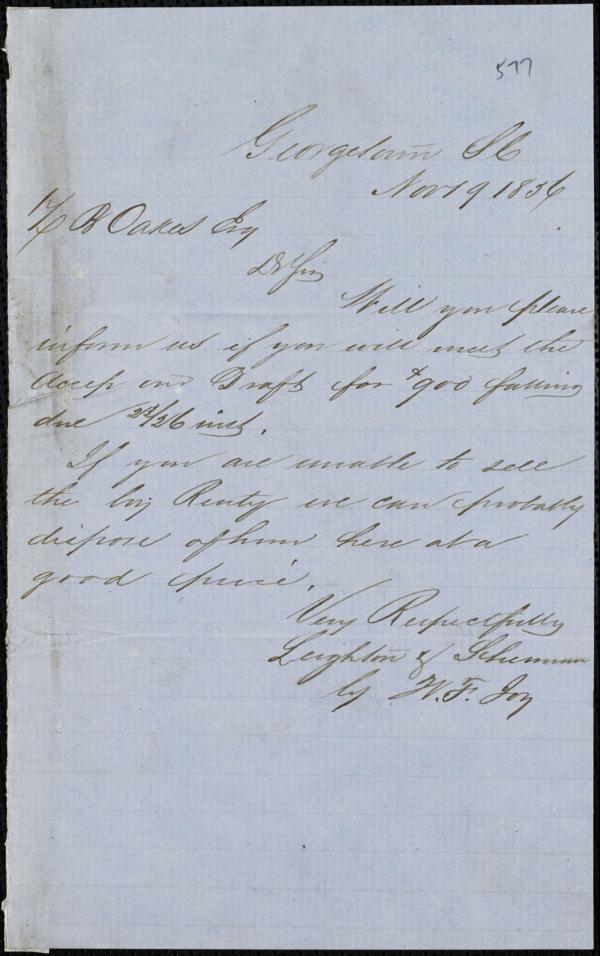 577
Georgetown SC
Nov 19 1856
Z B Oakes Esq
Dr Sir
Will you please
inform us if you will meet the
Accep on Draft for $900 falling
due 23/26 inst.
If you are unable to sell
the boy Renty we can probably
dispose of him here at a
good price.
Very Respectfully
Leighton & Sherman
by W. F. Joy